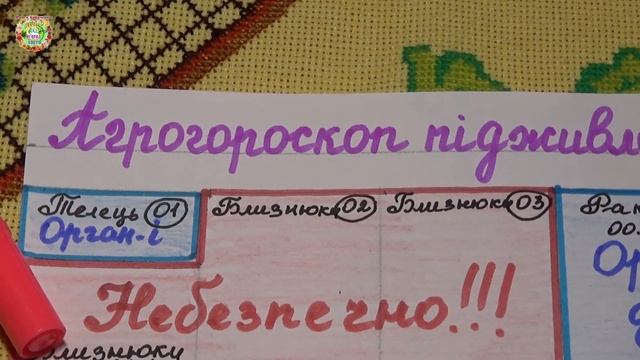 Агрогороскоп підживл
Телець 01 Близнюки 02 Близнюки 03 Рак
Орган-і
Небезпечно!!!
Близнюки